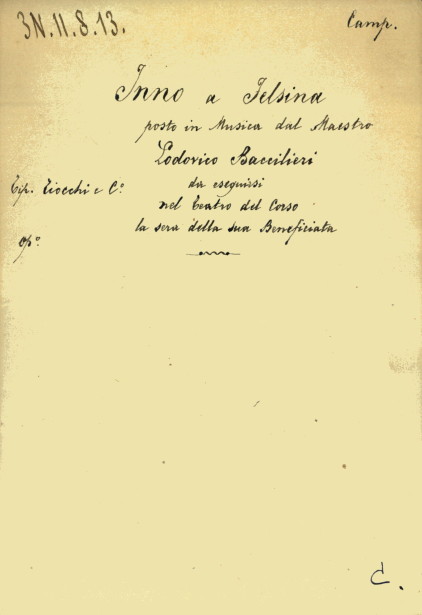 3N.11.8.13.
Camp.
Inno a Felsina
posto in Musica dal Maestro
Lodovico Baccilieri
Tip. Tiocchi e Cº
da eseguirsi
nel Teatro del Corso
la sera della sua Beneficiata
opº
C.